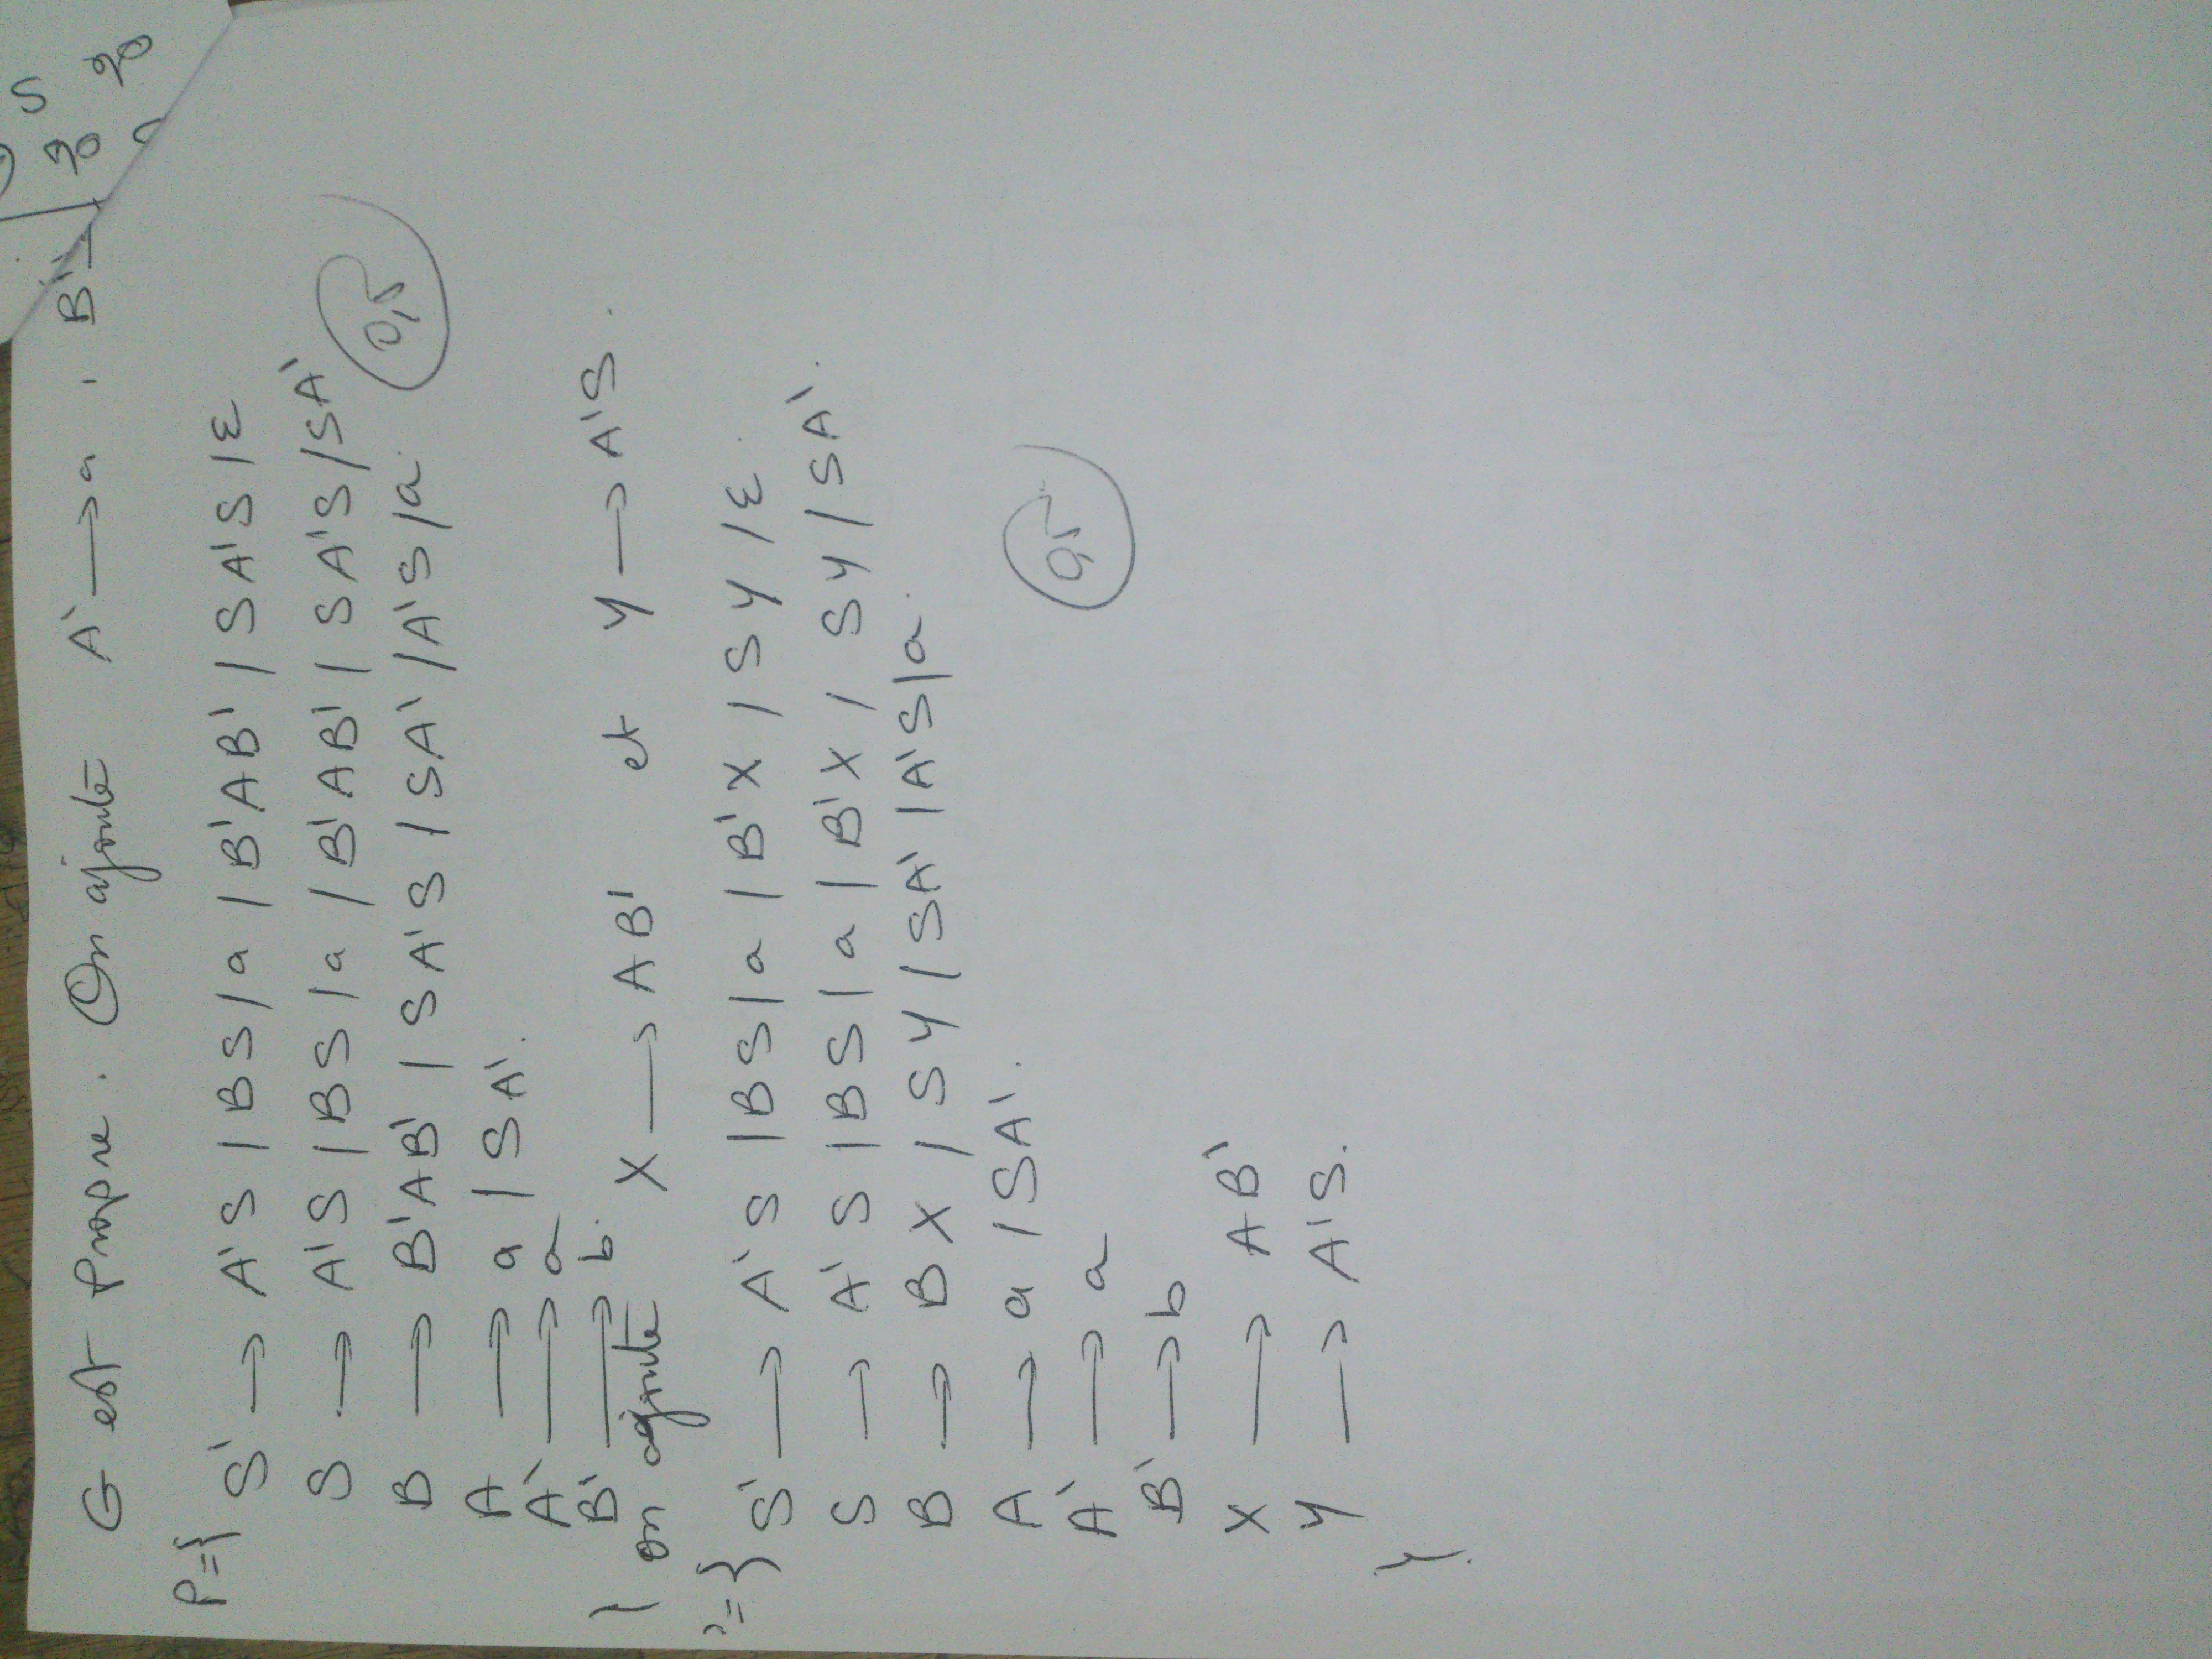 G est propre. On ajoute A' → a , B' →
P={
S' → A'S / BS / a / B'AB' / SA'S / ε
S → A'S / BS / a / B'AB' / SA'S / SA'
0,5
B → B'AB' / SA'S / SA' / A'S / a
A → a / SA'.
A' → a
B' → b.
} on ajoute X → AB' et Y → A'S.
'={
S' → A'S / BS / a / B'X / SY / ε
S → A'S / BS / a / B'X / SY / SA'.
B → BX / SY / SA' / A'S / a
A → a / SA'.
0,5
A' → a
B' → b
X → AB'
Y → A'S.
}